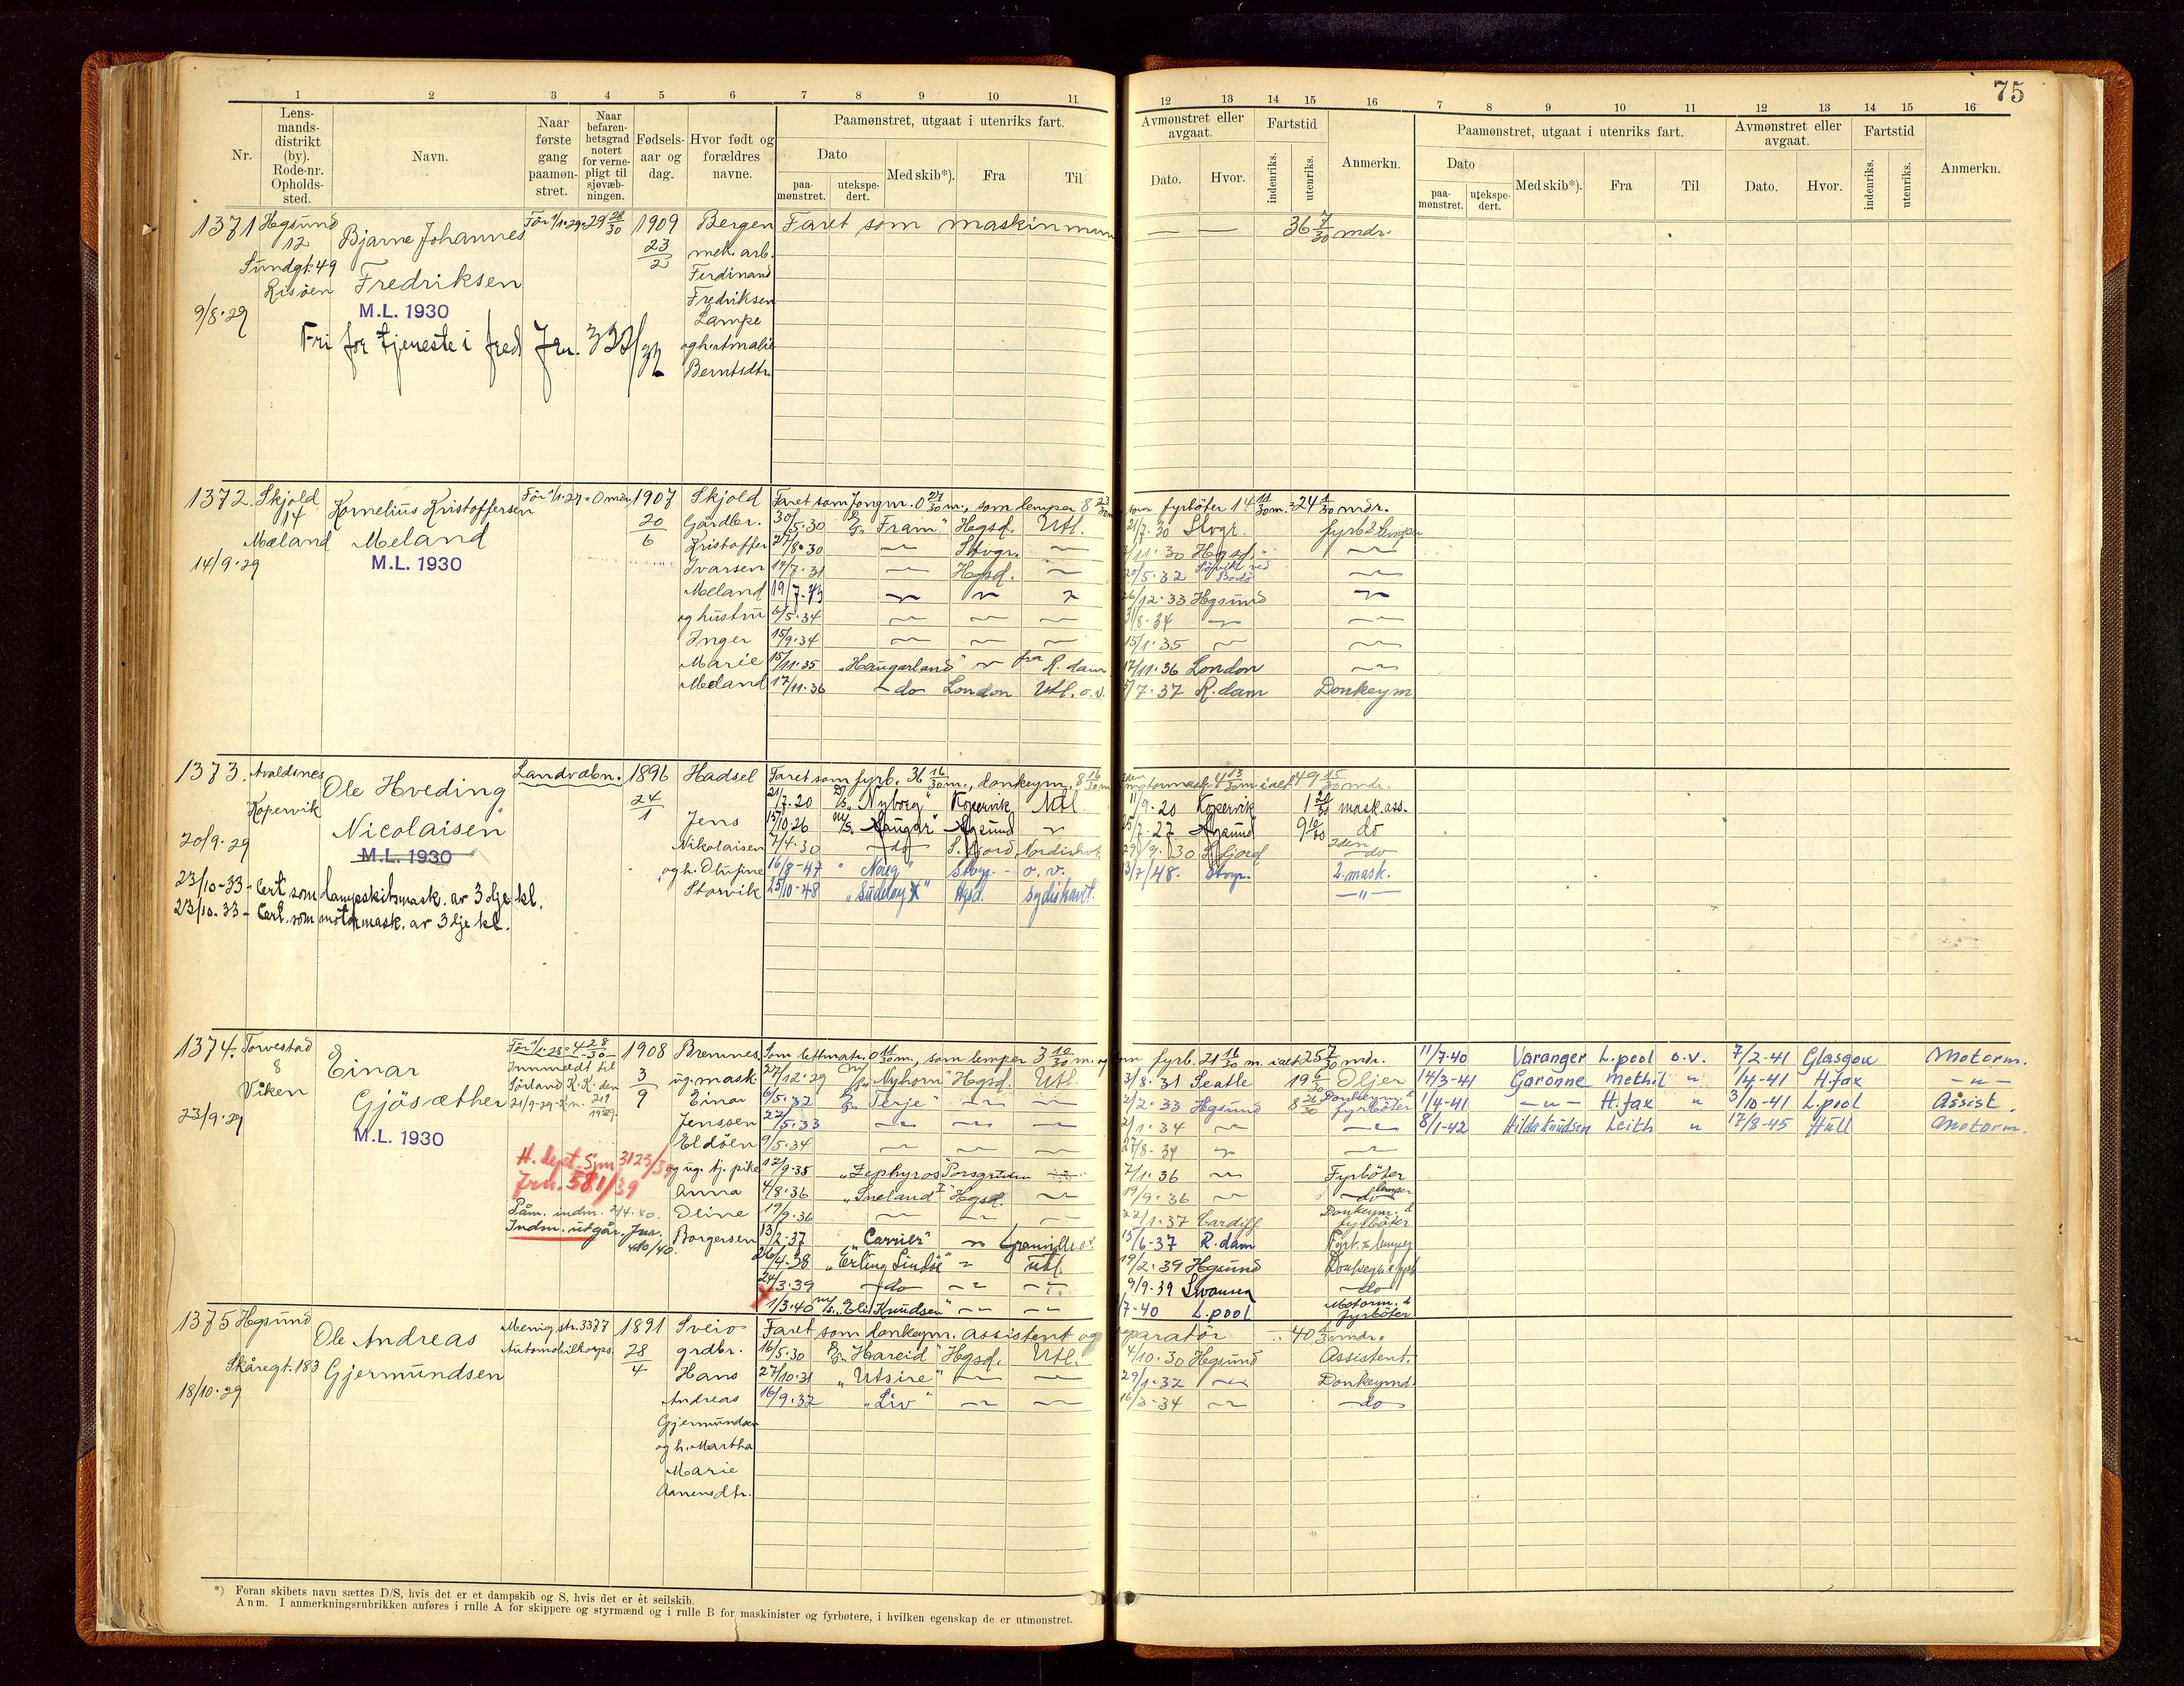 75
1 2 3 4 5 6 7 8 9 10 11 12 13 14 15 16 7 8 9 10 11 12 13 14 15 16
Nr.
Lens-
mands-
distrikt
(by).
Rode-nr.
Opholds-
sted.
Navn.
Naar
første
gang
paamøn-
stret.
Naar
befaren-
hetsgrad
notert
for verne-
pligt til
sjøvæb-
ningen.
Fødsels-
aar og
dag.
Hvor født og
forældres
navne.
Paamønstret, utgaat i utenriks fart.
Dato
paa-
mønstret.
utekspe-
dert.
Med skib*).
Fra
Til
Avmønstret eller
avgaat.
Dato.
Hvor.
Fartstid
indenriks.
utenriks.
Anmerkn.
Paamønstret, utgaat i utenriks fart.
Dato
paa-
mønstret.
utekspe-
dert.
Med skib*).
Fra
Til
Avmønstret eller
avgaat.
Dato.
Hvor.
Fartstid
indenriks.
utenriks.
Anmerkn.
1371 Hegsund
12
Sundgt. 49
Risöen
9/8.29
Bjarne Johannes
Fredriksen
M.L. 1930
Fri for tjeneste i fred Jrn.
För 1/1.29=29 28/30
1909
23/2
Bergen
mek. arb.
Ferdinand
Fredriksen
Lampe
og h. Amalie
Berntsdtr.
Faret som maskinmann — — 36 7/30 mdr.
1372. Skjold
14
Mæland
14/9.29
Kornelius Kristoffersen
Meland
M.L. 1930
För 1/1.27=0 mdr.
1907
20/6
Skjold
Gårdbr.
Kristoffer
Ivarsen
Meland
og hustru
Inger
Marie
Meland
Faret som Jungm. 0 27/30 m., som lemper 8 23/30 m som fyrböter 14 11/30 m. = 24 1/30 mdr.
30/5.30 D/S "Fram" Hegsd. Utl. 21/7.30 Stvgr. fyrb & lemper
27/8.30 — Stvgr. — /11.30 Hgsd. —
14/7.31 — Hgsd. — 20/5.32 Söfvik ved Bodö —
19/7.33 — — — 26/12.33 Hgsund —
6/5.34 — — — 3/8.34 — —
15/9.34 — — — 15/1.35 — —
15/11.35 "Haugarland" — fra R.dam 17/11.36 London —
17/11.36 — do — London Utl. o.v. /7.37 R.dam Donkeym
1373. Avaldsnes
Kopervik
20/9.29
Ole Hveding
Nicolaisen
M.L. 1930
23/10-33 - Cert. som dampskibsmask. av 3dje kl.
23/10.33 - Cert. som motormask. av 3dje kl.
Landvæbn.
1896
24/1
Hadsel
Jens
Nikolaisen
og h. Olufine
Storvik
Faret som fyrb. 36 16/30 m., donkeym. 8 16/30 m motormask. 4 13/30 m. ialt 49 15/30 mdr.
21/7.20 D/S "Nyborg" Kopervik Utl. 11/9.20 Kopervik 1 20/30 mask.ass.
15/10.26 M/S. "Haugar" Hgsund — 25/7.27 Hgsund 9 10/30 do
7/4.30 — do — S.fjord Nordishvt. 29/9.30 S.fjord 2den do
16/8-47 " Noreg" Stvgr. - o.v. 3/7/48. Stvgr. 2. mask.
25/10-48 "Suderøy X" Hgsd. Sydishavet. —"—
1374. Torvestad
8
Viken
23/9.29
Einar
Gjösæther
M.L. 1930
För 1/1.28=4 28/30
Innmeldt til
Sörland K.K. den
21/9-29
H. dept. Spm 3123/39
Jrn. 581/39
Påm. indm. 2/4.40.
Indm. utgår. Jnr.
410/40.
1908
3/9
Bremnes.
ug. mask.
Einar
Jenssen
Eldöen
og ug. tj. pike
Anna
Oline
Borgersen
Som lettmatr. 0 11/30 m., som lemper 3 10/30 m. og som fyrb. 21 16/30 m. ialt 25 7/30 mdr.
27/12.29 M/S "Nyhorn" Hgsd. Utl. 3/8.31 Seatle 19 Oljer
6/5.32 D/S "Terje" — — 2/2.33 Hegsund 8 26/30 Donkeym. & fyrböter
22/5.33 — — — 2/1.34 — —
9/5.34 — — — 27/8.34 — —
12/9.35 "Zephyros" Porsgrunn — 7/1.36 — Fyrböter
4/8.36 "Sneland I" Hgsd. — 19/9.36 — do lemper
19/9.36 — — — 22/1.37 Cardiff Donkeym. & fyrböter
13/2.37 "Carrier" — Granville o.v. 15/6-37 R.dam Fyrb. & lemper
26/4.38 "Erling Lindöe" — Utl. 19/2.39 Hgsund Donkeym. & fyrb
24/3.39 — do — — — 9/9.39 Swansea — do —
1/3.40 M/S. "Elis. Knudsen" — — /7-40 L.pool Motorm. & fyrböter
11/7-40 Varanger L.pool o.v. 7/2-41 Glasgow Motorm.
14/3-41 Garonne Methil " 1/4-41 H.fax —"—
1/4-41 —"— H.fax " 3/10-41 L.pool Assist.
8/1-42 Hilda Knudsen Leith " 17/8-45 Hull Motorm.
1375 Hegsund
Skåregt. 183
18/10.29
Ole Andreas
Gjermundsen
Menig str. 3377
Automobilkorps.
1891
28/4
Sveio
grdbr.
Hans
Andreas
Gjermundsen
og h. Martha
Marie
Aanensdtr.
Faret som donkeym. assistent og separatör = 40 mdr.
16/5.30 D/S "Hareid" Hgsd. Utl. 4/10.30 Hegsund Assistent.
27/10.31 "Utsire" — — 29/1.32 — Donkeymd.
16/9.32 "Liv" — — 16/3.34 — do
*) Foran skibets navn sættes D/S, hvis det er et dampskib og S, hvis det er ét seilskib.
Anm. I anmerkningsrubrikken anføres i rulle A for skippere og styrmænd og i rulle B for maskinister og fyrbøtere, i hvilken egenskap de er utmønstret.